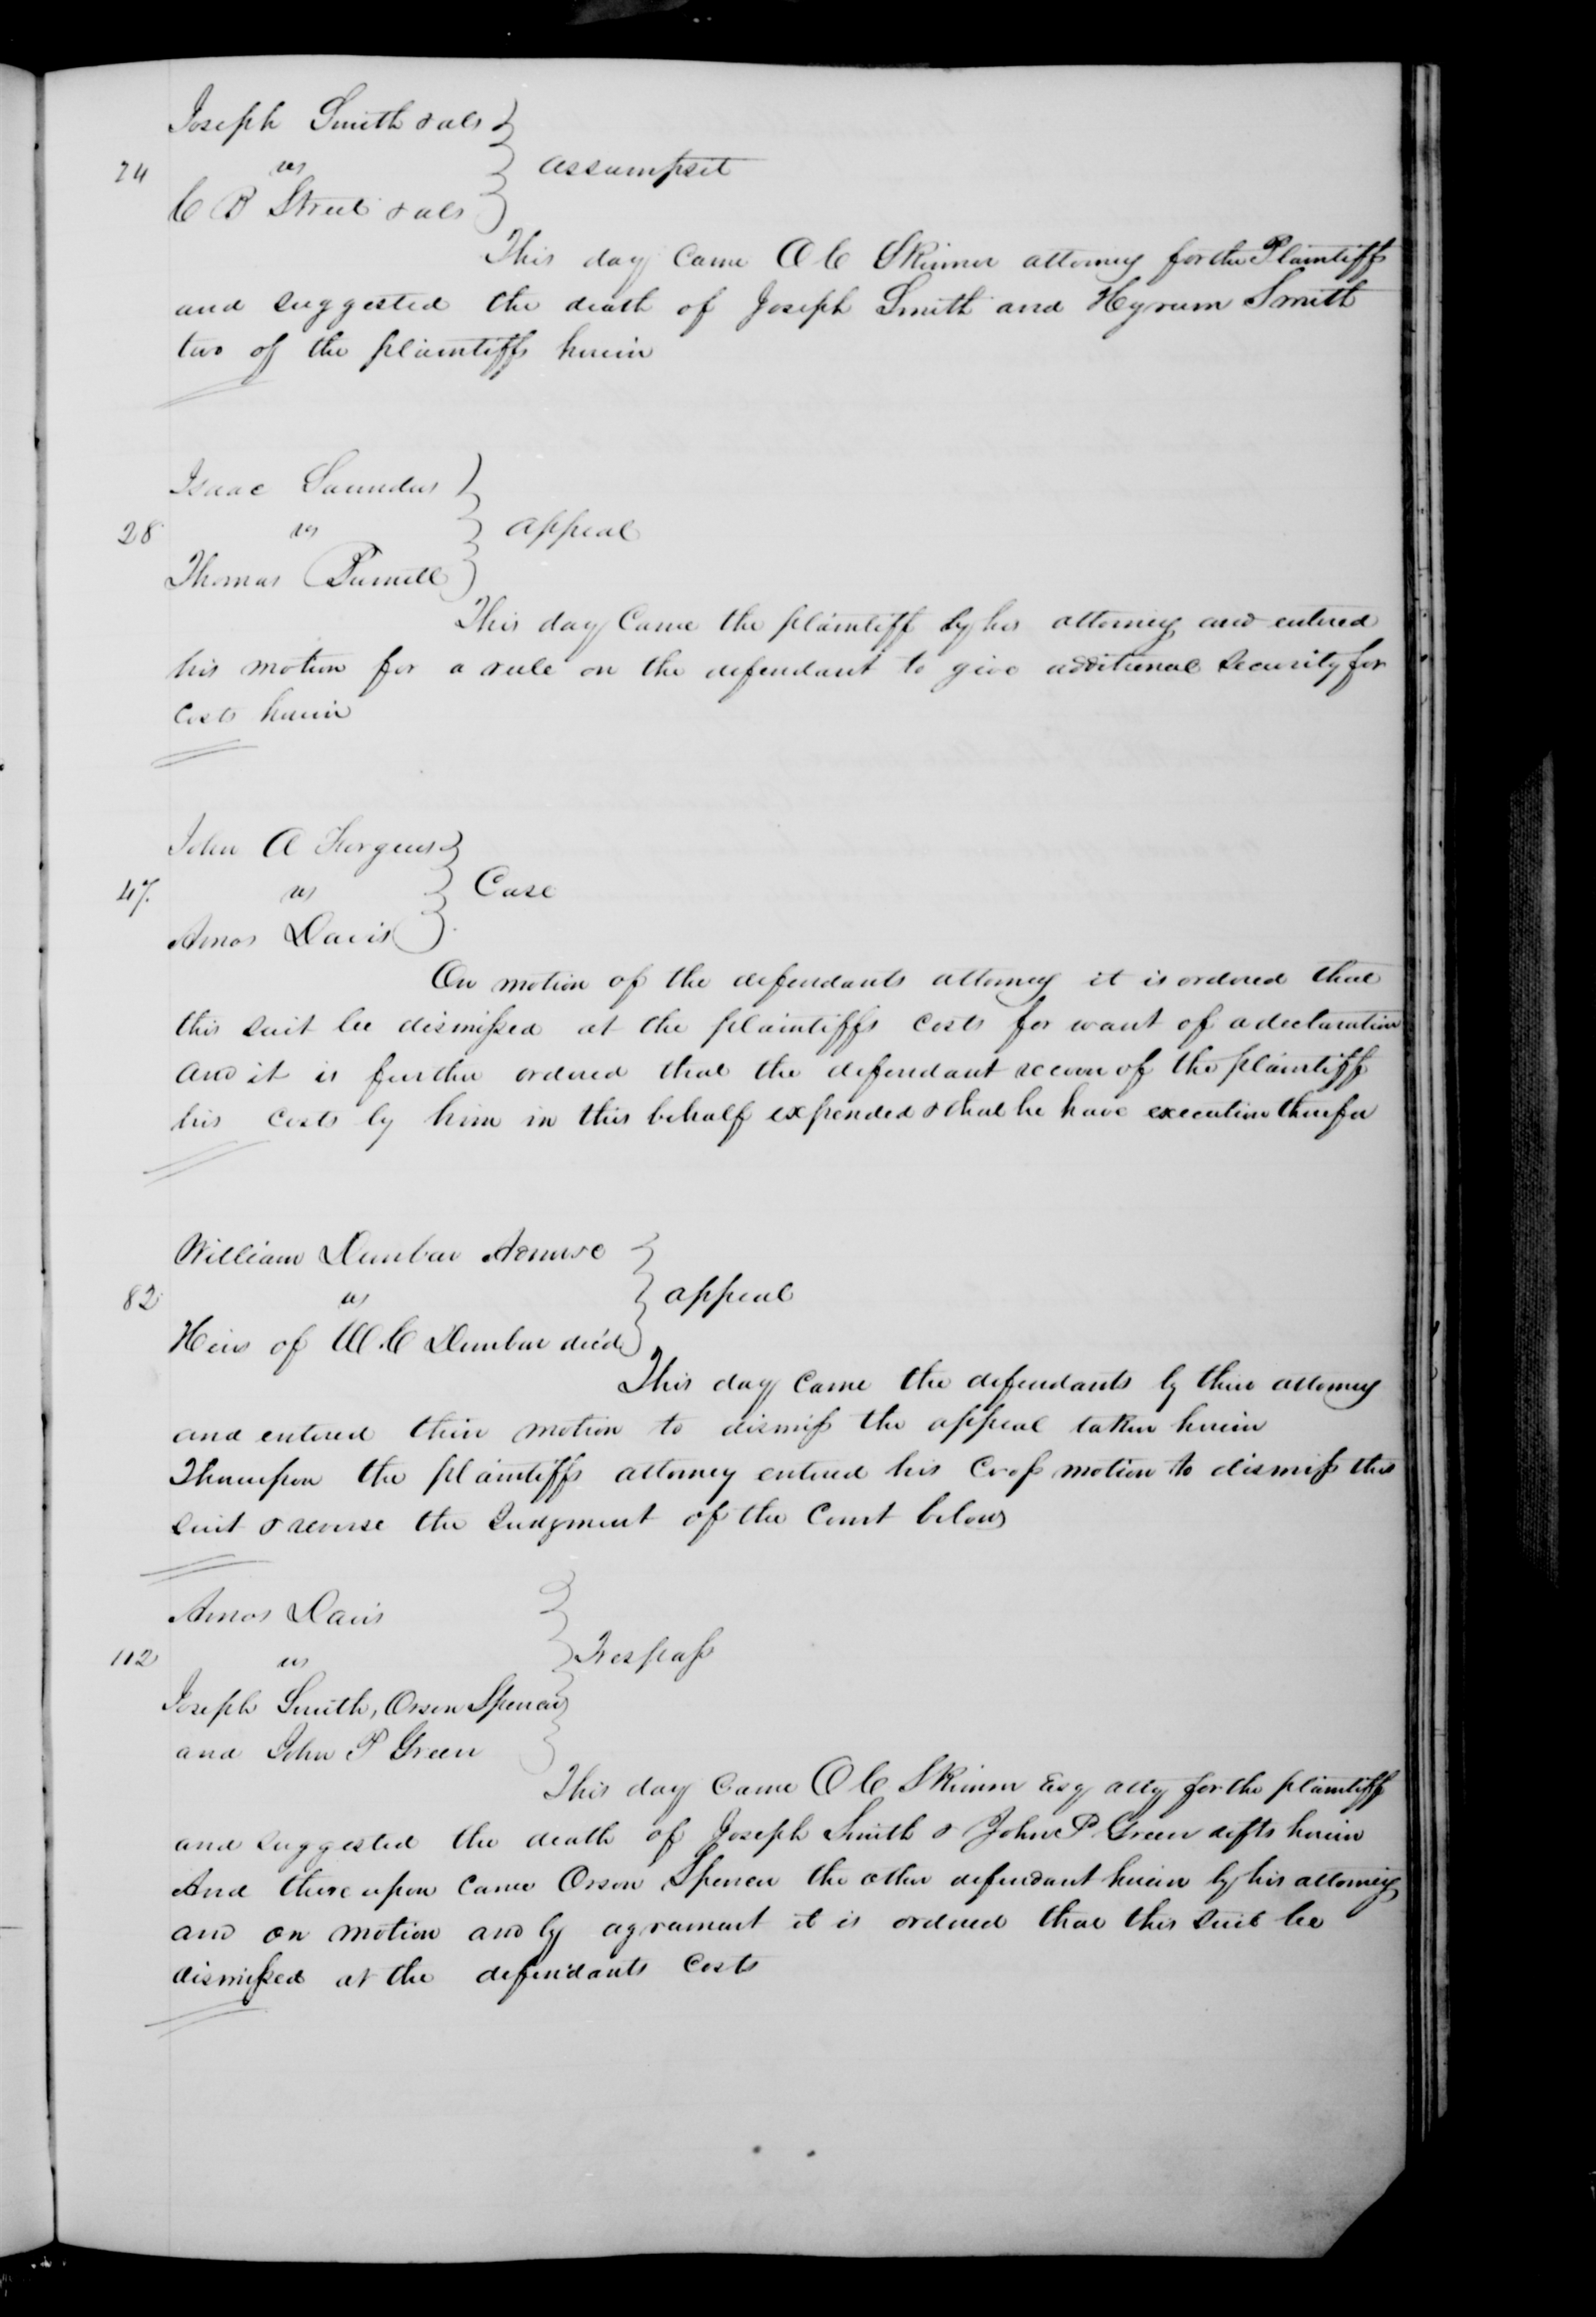 Joseph Smith & als
24 vs assumpsit
C B Street & als
This day came O C Skinner attorney for the Plaintiffs
and suggested the death of Joseph Smith and Hyrum Smith
two of the plaintiffs herein
Isaac Saunders
28 vs appeal
Thomas
This day Came the plaintiff by his attorney and entered
his motion for a rule on the defendant to give additional security for
costs herein
John A Forgeus
47. vs Case
Amos Davis
On motion of the defendants attorney it is ordered that
this suit be dismissed at the plaintiffs costs for want of a declaration
and it is further ordered that the defendant recover of the plaintiff
his costs by him in this behalf expended & that he have execution therefor
William Dunbar
82 vs appeal
Heirs of W. C Dunbar dec'd
This day came the defendants by their attorney
and entered their motion to dismiss the appeal taken herein
Thereupon the plaintiffs attorney entered his Cross motion to dismiss this
suit & reverse the Judgment of the Court below
Amos Davis
112 vs Trespass
Joseph Smith, Orson Spencer
and John P Green
This day came O C Skinner Esq atty for the plaintiff
and suggested the death of Joseph Smith & John P Green defts herein
And there upon came Orson Spencer the other defendant herein by his attorney
and on motion and by agreement it is ordered that this suit be
dismissed at the defendants costs